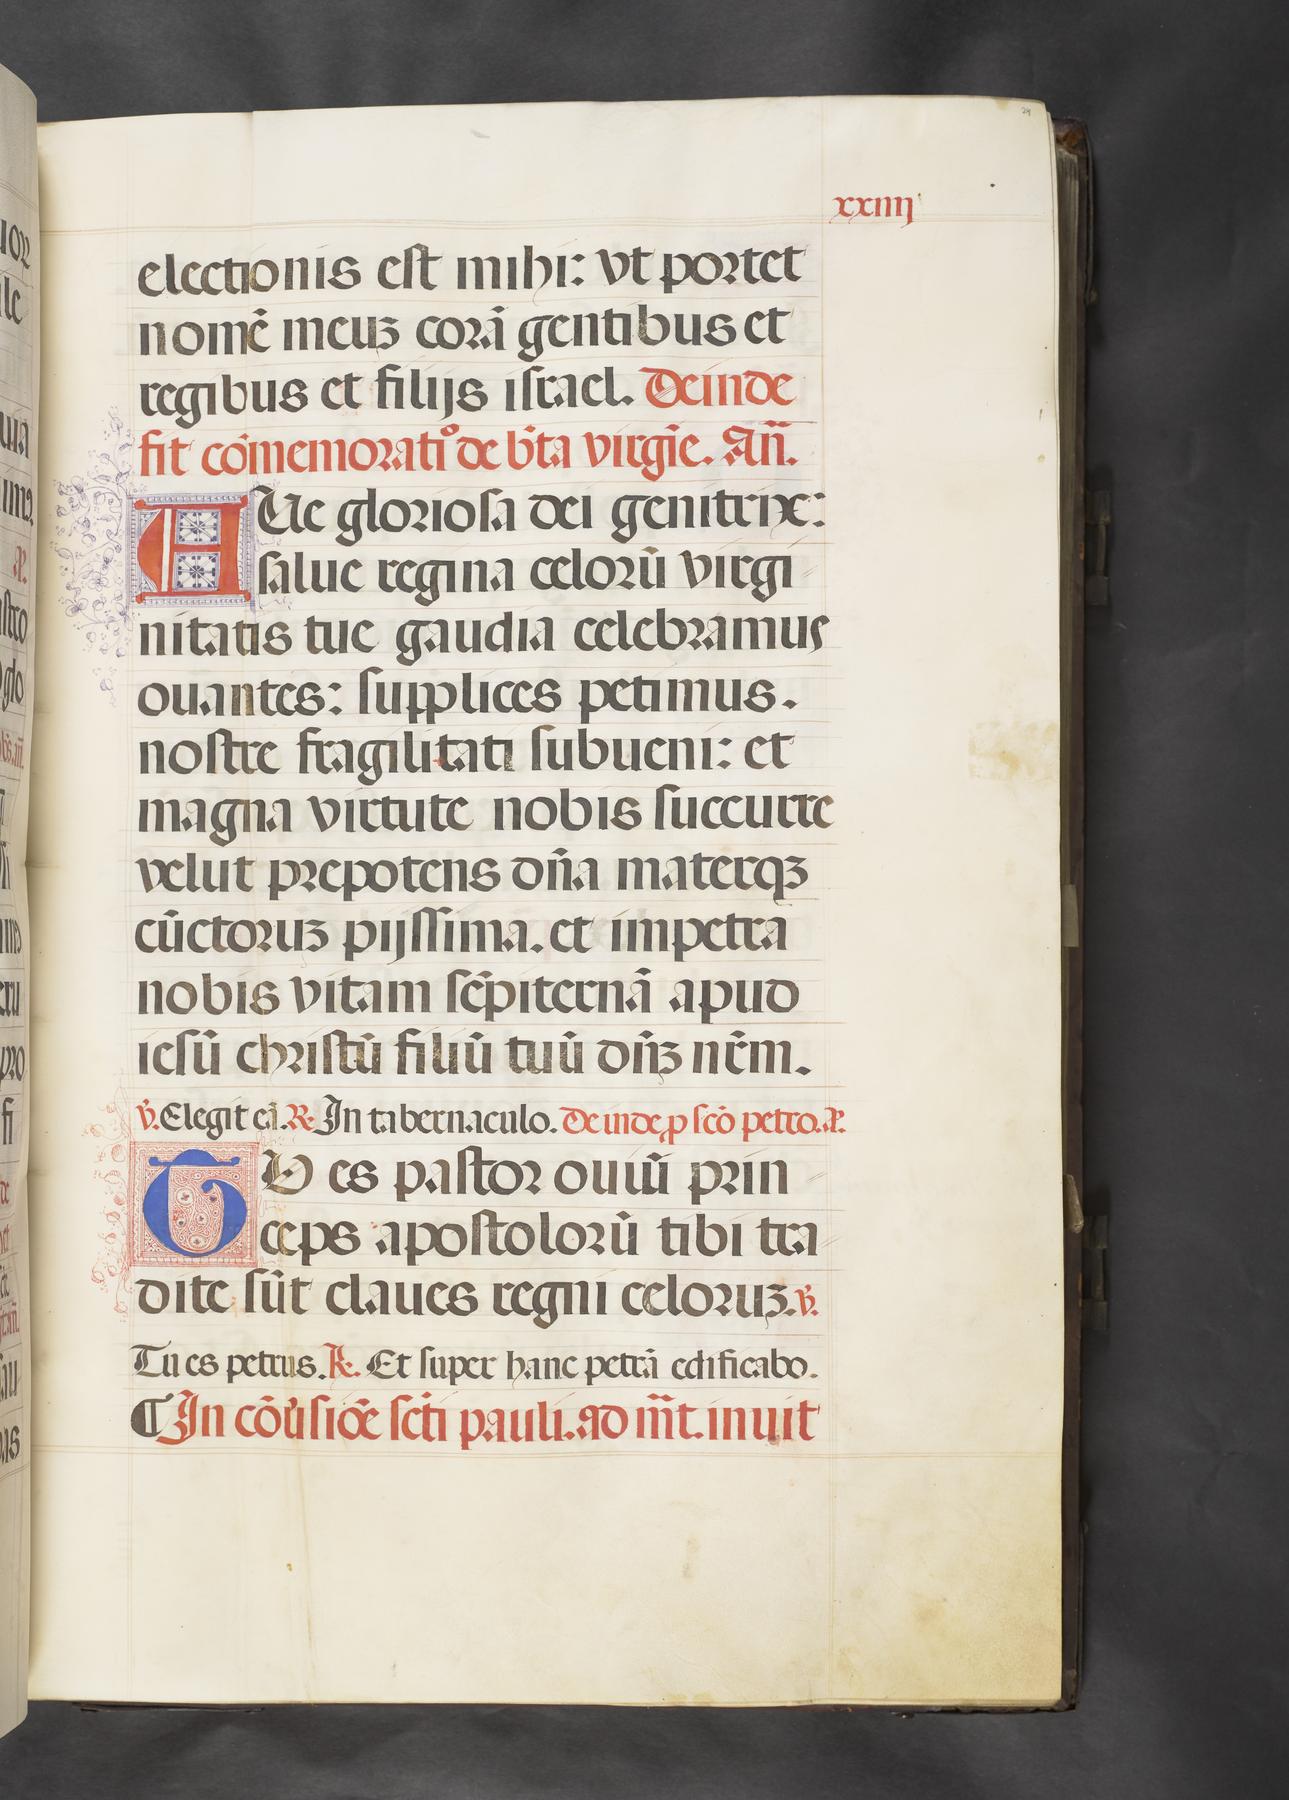 24
xxiiij
electionis est mihi: vt portet
nomē meuꝫ corā gentibus et
regibus et filijs israel. Deinde
fit cōmemoratiͦ de bt̄a virgīe. Añ.
AUe gloriosa dei genitrix:
salue regina celorū virgi
nitatis tue gaudia celebramus
ouantes: supplices petimus.
nostre fragilitati subueni: et
magna virtute nobis succurre
velut prepotens dñа materqꝫ
cūctoruꝫ pijssima. et impetra
nobis vitam sēpiternā apud
iesū christū filiū tuū dñꝫ nr̄m.
℣. Elegit eā. ℟. In tabernaculo. Deinde ꝓ scō petro. A.
TU es pastor ouiū prin
ceps apostolorū tibi tra
dite sūt claues regni celoruꝫ. ℣.
Tu es petrus. ℟. Et super hanc petrā edificabo.
¶ In cōūsiōe scti pauli. ad mt̄. inuit